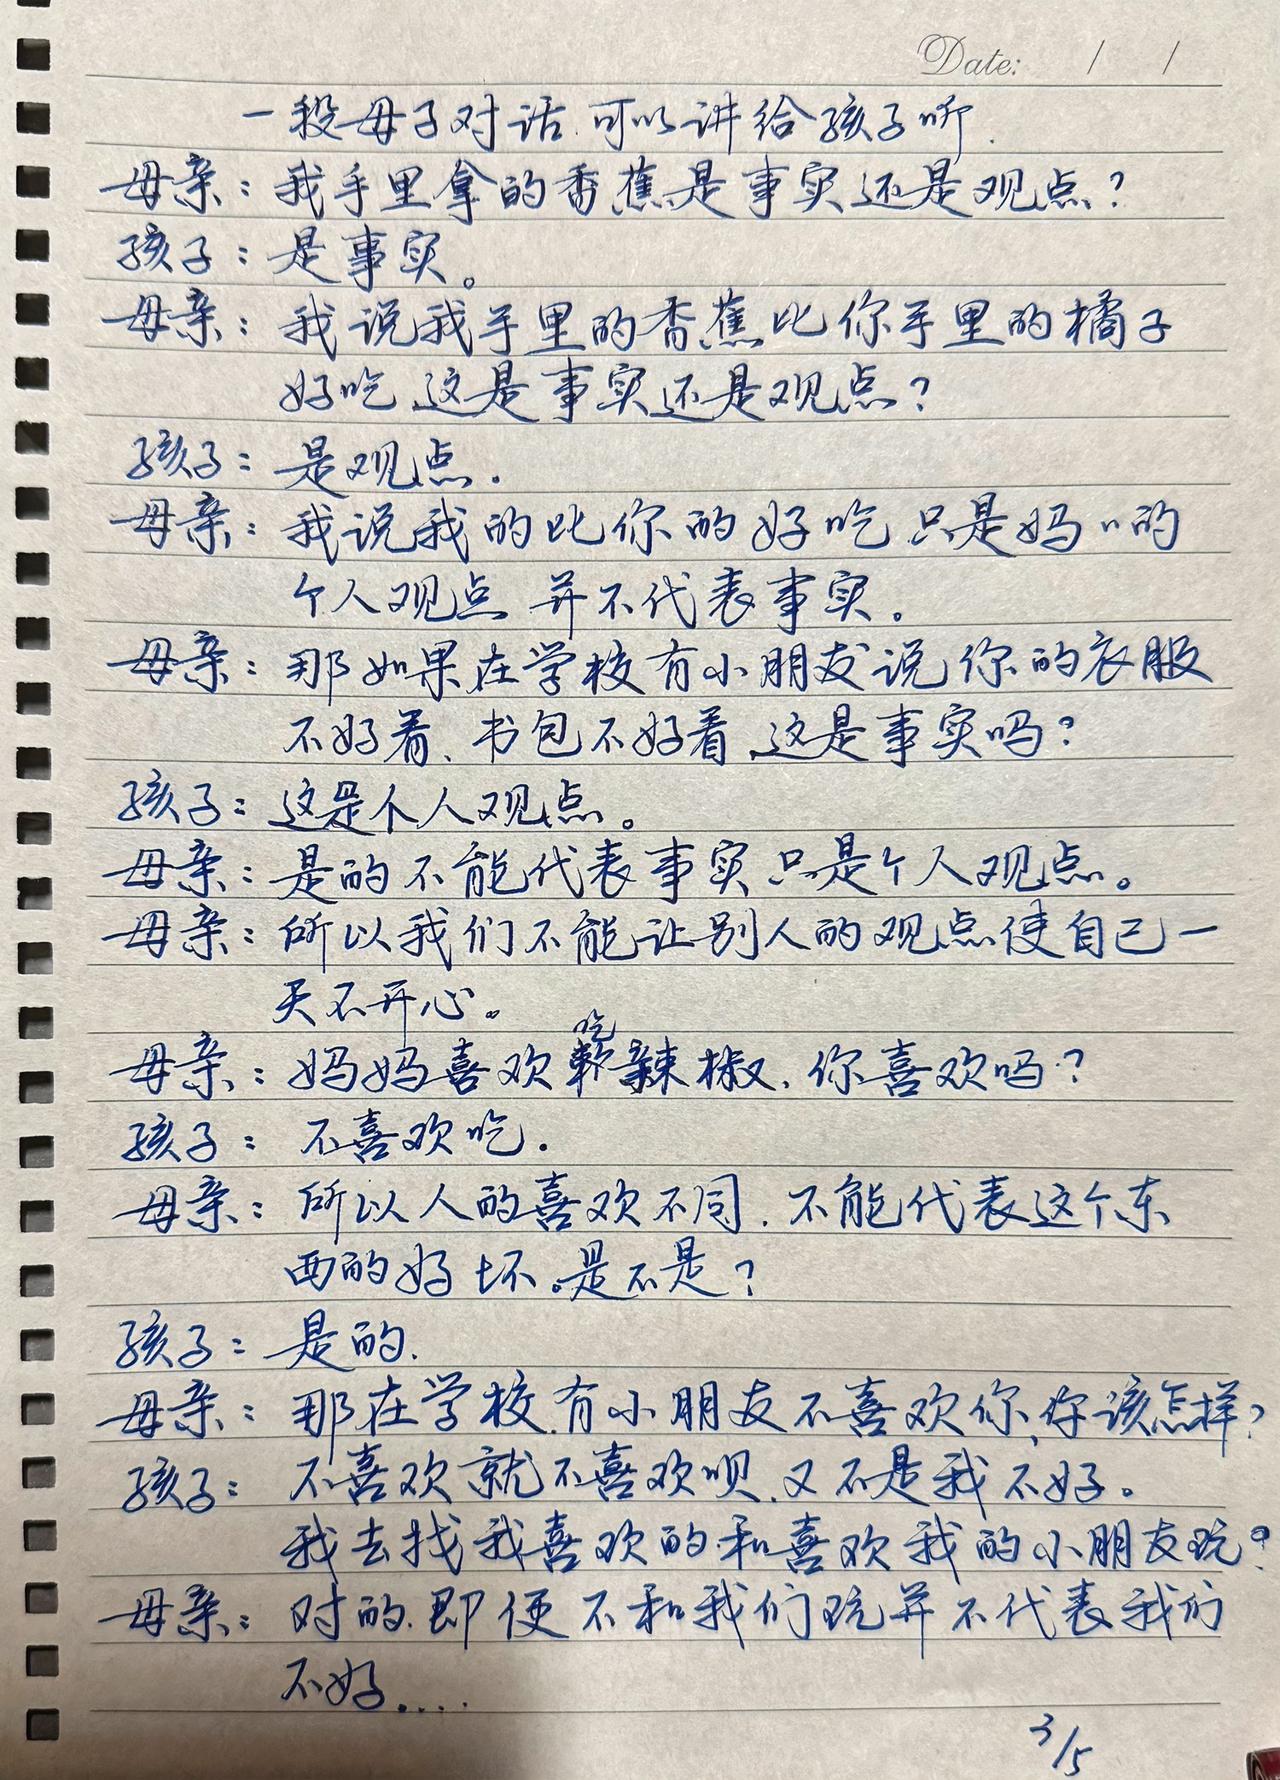 Date: / /
一段母子对话.可以讲给孩子听.
母亲：我手里拿的香蕉是事实还是观点？
孩子：是事实。
母亲：我说我手里的香蕉比你手里的橘子
好吃.这是事实还是观点？
孩子：是观点.
母亲：我说我的比你的好吃.只是妈〃的
个人观点.并不代表事实。
母亲：那如果在学校有小朋友说你的衣服
不好看、书包不好看.这是事实吗？
孩子：这是个人观点。
母亲：是的不能代表事实.只是个人观点。
母亲：所以我们不能让别人的观点使自己一
天不开心。
母亲：妈妈喜欢吃辣椒.你喜欢吗？
孩子：不喜欢吃.
母亲：所以人的喜欢不同.不能代表这个东
西的好坏。是不是？
孩子：是的.
母亲：那在学校.有小朋友不喜欢你,你该怎样？
孩子：不喜欢就不喜欢呗.又不是我不好。
我去找我喜欢的和喜欢我的小朋友玩？
母亲：对的.即使不和我们玩并不代表我们
不好....
3/5